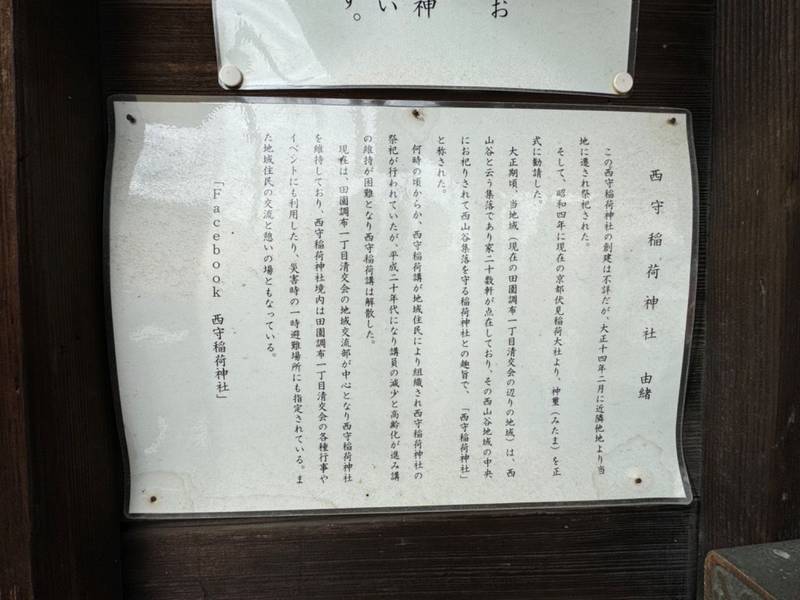 お
神
い
す。
西守稲荷神社 由緒
この西守稲荷神社の創建は不詳だが、大正十四年二月に近隣他地より当
地に遷され祭祀された。
そして、昭和四年に現在の京都伏見稲荷大社より、神璽（みたま）を正
式に勧請した。
大正期頃、当地域（現在の田園調布一丁目清交会の辺りの地域）は、西
山谷と云う集落であり家二十数軒が点在しており、その西山谷地域の中央
にお祀りされて西山谷集落を守る稲荷神社との趣旨で、「西守稲荷神社」
と称された。
何時の頃からか、西守稲荷講が地域住民により組織され西守稲荷神社の
祭祀が行われていたが、平成二十年代になり講員の減少と高齢化が進み講
の維持が困難となり西守稲荷講は解散した。
現在は、田園調布一丁目清交会の地域交流部が中心となり西守稲荷神社
を維持しており、西守稲荷神社境内は田園調布一丁目清交会の各種行事や
イベントにも利用したり、災害時の一時避難場所にも指定されている。ま
た地域住民の交流と憩いの場ともなっている。
「Facebook 西守稲荷神社」